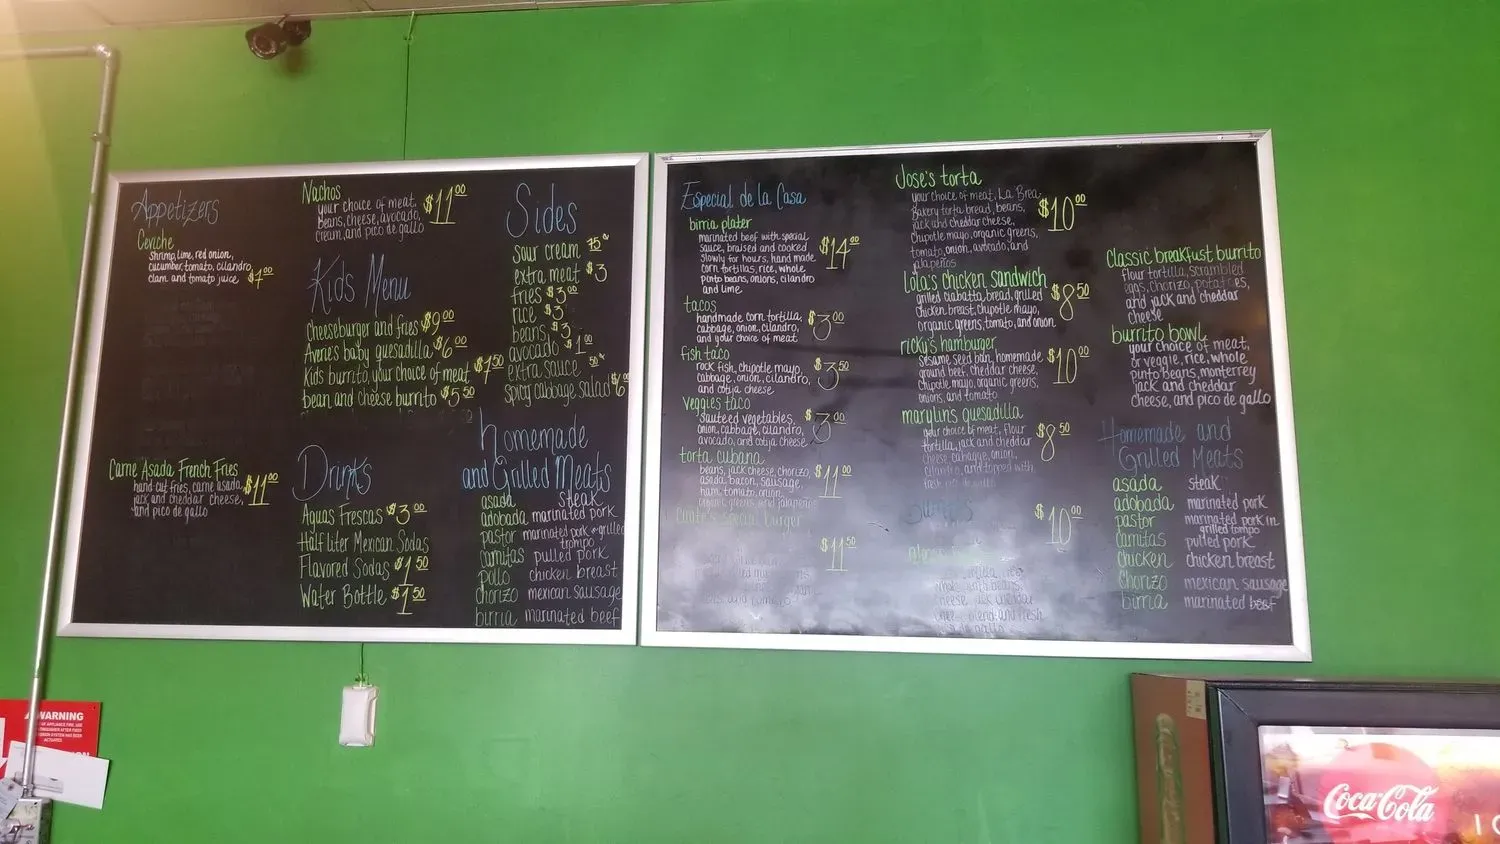 Appetizers
Ceviche
shrimp, lime, red onion,
cucumber, tomato, cilandro,
clam and tomato juice
Carne Asada French Fries
hand cut fries, carne asada,
jack and cheddar cheese,
and pico de gallo
$11.00
Nachos
your choice of meat,
beans, cheese, avocado,
cream, and pico de gallo
$11.00
Kids Menu
cheeseburger and fries $9.00
Averie's baby quesadilla $6.00
Kids burrito, your choice of meat $7.50
bean and cheese burrito $5.50
Drinks
Aguas Frescas $3.00
Half liter Mexican Sodas
Flavored Sodas $1.50
Water Bottle $1.50
Sides
sour cream 75¢
extra meat $3
fries $3.00
rice $3
beans $3
avocado $1.00
extra sauce 50¢
spicy cabbage salad $6
homemade
and Grilled Meats
asada steak
adobada marinated pork
pastor marinated pork grilled
trompo
carnitas pulled pork
pollo chicken breast
chorizo mexican sausage
birria marinated beef
Especial de la Casa
birria plater
marinated beef with special
sauce, braised and cooked
slowly for hours, hand made
corn tortillas, rice, whole
pinto beans, onions, cilandro
and lime
$14.00
tacos
handmade corn tortilla,
cabbage, onion, cilandro,
and your choice of meat
$3.00
fish taco
rock fish, chipotle mayo,
cabbage, onion, cilandro,
and cotija cheese
$3.50
veggies taco
sauteed vegetables,
onion, cabbage, cilandro,
avocado, and cotija cheese
$3.00
torta cubana
beans, jack cheese, chorizo,
asada, bacon, sausage,
ham, tomato, onion,
organic greens, and jalapeños
$11.00
special burger
$11.50
Jose's torta
your choice of meat, La Brea
Bakery torta bread, beans,
jack and cheddar cheese,
chipotle mayo, organic greens,
tomato, onion, avocado, and
jalapeños
$10.00
Lola's chicken sandwich
grilled ciabatta, bread, grilled
chicken breast, chipotle mayo,
organic greens, tomato, and onion
$8.50
ricky's hamburger
sesame seed bun, homemade
ground beef, cheddar cheese,
chipotle mayo, organic greens,
onions, and tomato
$10.00
marylin's quesadilla
your choice of meat, flour
tortilla, jack and cheddar
cheese, cabagge, onion,
cilandro, and topped with
$8.50
$10.00
Classic breakfust burrito
flour tortilla, scrambled
eggs, chorizo, potatoes,
and jack and cheddar
cheese
burrito bowl
your choice of meat,
or veggie, rice, whole
pinto beans, monterrey
jack and cheddar
cheese, and pico de gallo
Homemade and
Grilled Meats
asada steak
adobada marinated pork
pastor marinated pork in
grilled tompo
carnitas pulled pork
chicken chicken breast
chorizo mexican sausage
birria marinated beef
WARNING
Coca-Cola